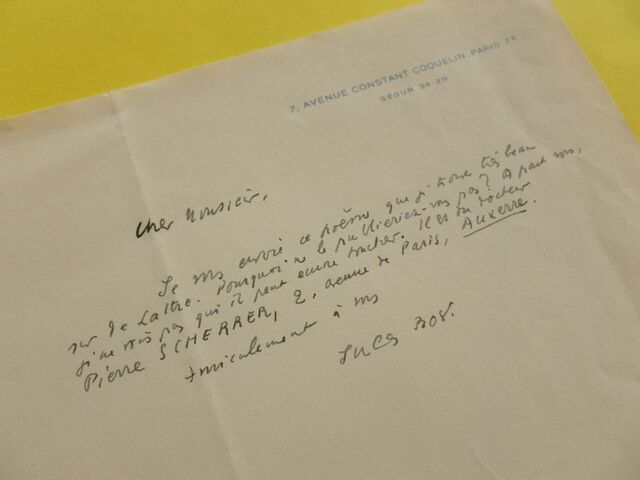 7, AVENUE CONSTANT COQUELIN PARIS. 7E
SÉGUR 34-29
Cher Monsieur,
Je vous envoie ce poème que je trouve très beau
sur de Lattre. Pourquoi ne le publieriez-vous pas? A part vous,
je ne vois pas qui il peut encore toucher. Il est du docteur
Pierre SCHERRER, 2, avenue de Paris, Auxerre.
Amicalement à vous